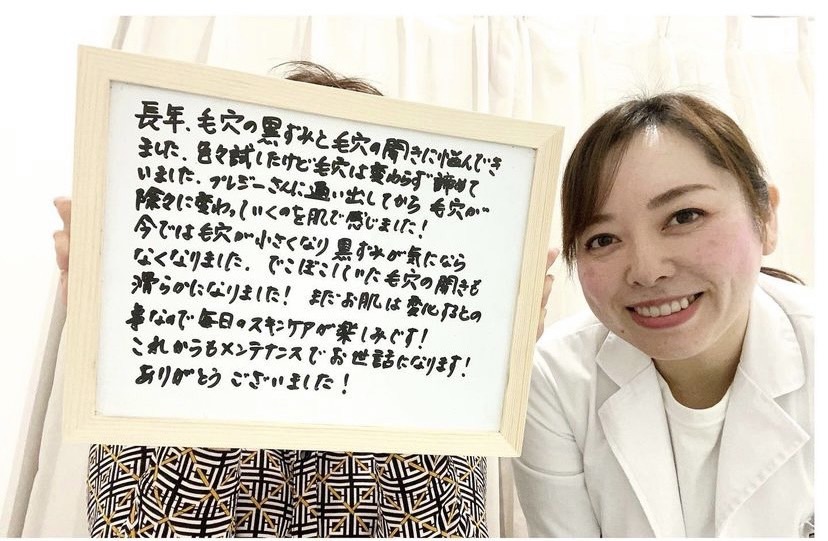 長年、毛穴の黒ずみと毛穴の開きに悩んでき
ました、色々試したけど毛穴は変わらず諦めて
いました、プレジーさんに通い出してから 毛穴が
除々に変わっていくのを肌で感じました!
今では毛穴が小さくなり 黒ずみが気になら
なくなりました、でこぼこしていた毛穴の開きも
滑らかになりました! まだお肌は変化するとの
事なので毎日のスキンケアが楽しみです!
これからもメンテナンスでお世話になります!
ありがとうございました!